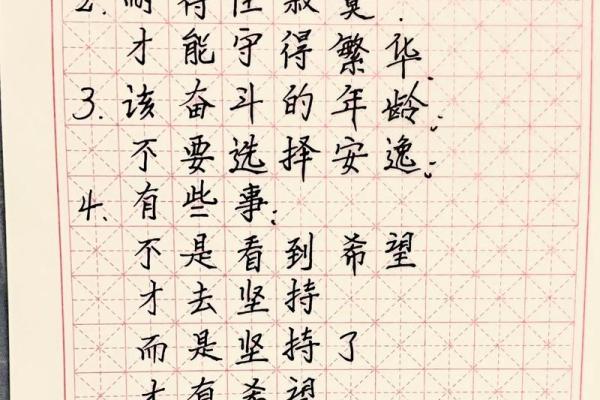 2.耐得住寂寞.
才能守得繁华.
3.该奋斗的年龄;
不要选择安逸;
4.有些事:
不是看到希望
才去坚持
而是坚持了
才有希望